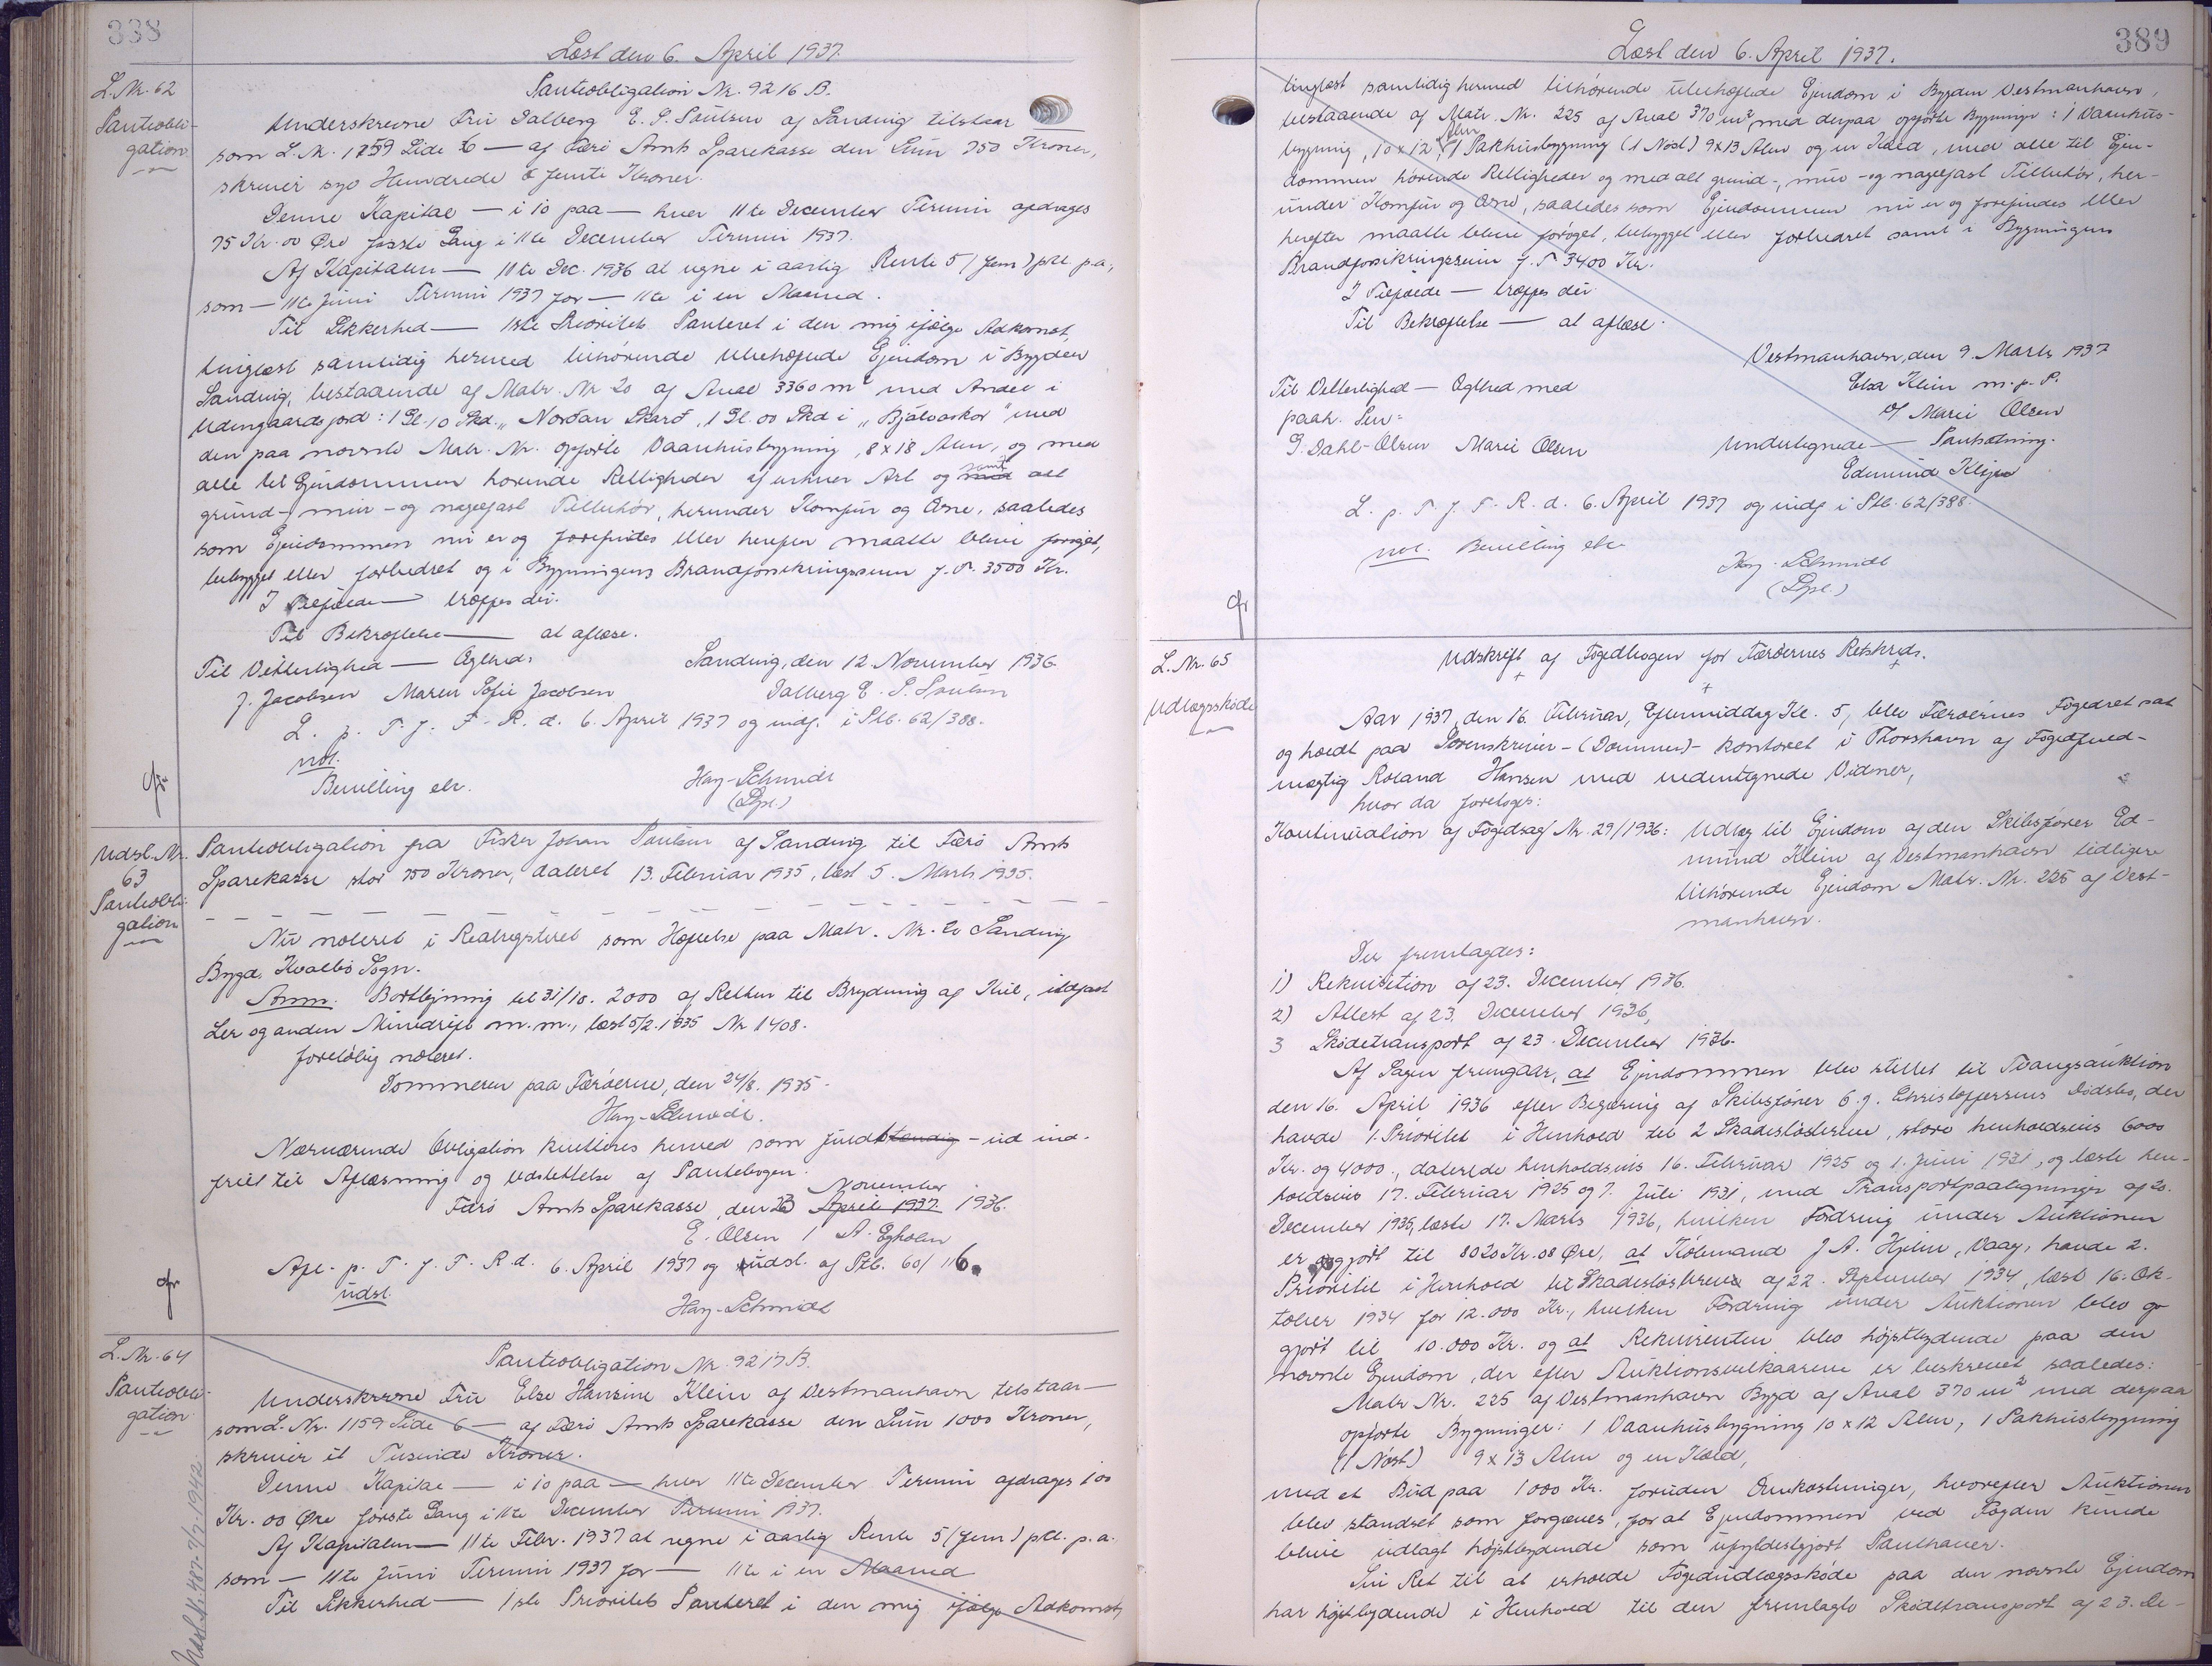 338
Læst den 6. April 1937.
L. Nr. 62
Pantobli-
gation
Pantobligation Nr. 9216 B.
Underskrevne Fru Dalberg E. P. Poulsen af Sandvig tilstaar
som L. Nr. 1159 Side 6 — af Færø Amts Sparekasse den Sum 750 Kroner,
skriver syv Hundrede & femti Kroner.
Denne Kapital — i 10 paa — hver 11te December Termin afdrages
75 Kr. 00 Øre første Gang i 11te December Termin 1937.
Af Kapitalen — 11te Dec. 1936 at regne i aarlig Rente 5 (fem) pCt. p.a.,
som — 11te Juni Termin 1937 for — 11te i en Maaned.
Til Sikkerhed — 1ste Prioritets Panteret i den mig ifølge Adkomst,
tinglæst samtidig hermed tilhørende ubehæftede Ejendom i Bygden
Sandvig, bestaaende af Matr. Nr 20 af Areal 3360 m² med Andel i
Udengaardsjord: 1 Gl. 10 Skd. „Nordan Skarð", 1 Gl. 00 Skd i „Bjálvaskor" med
den paa nævnte Matr. Nr. opførte Vaanhusbygning, 8 x 18 Alen, og med
alle til Ejendommen hørende Rettigheder af enhver Art og med samt alt
grund-, mur- og nagelfast Tilbehør, herunder Komfur og Ovne, saaledes
som Ejendommen nu er og forefindes eller herefter maatte blive forøget,
bebygget eller forbedret og i Bygningens Brandforsikringssum f. T. 3500 Kr.
I Tilfælde — træffes der.
Til Bekræftelse — at aflæse.
Til Vitterlighed — Ægthed:
Sandvig, den 12. November 1936
J. Jacobsen Maren Sofie Jacobsen
Dalberg E. P. Poulsen
L. p. T. f. F. R. d. 6. April 1937 og indf. i Ptb. 62/388.
not.
Bevilling etc.
Hay-Schmidt
(Dpl.)
Udsl. Nr.
63
Pantobli-
gation
Pantobligation fra Fisker Johan Poulsen af Sandvig til Færø Amts
Sparekasse stor 750 Kroner, dateret 13. Februar 1935, læst 5. Marts 1935.
Nu noteret i Realregistret som Hæftelse paa Matr. Nr. 20 Sandvig
Bygd, Kvalbø Sogn.
Anm. Bortlejning til 31/10. 2000 af Retten til Brydning af Kul, ildfast
Ler og anden Minedrift m.m., læst 5/2. 1935 Nr 1408.
foreløbig noteret.
Dommeren paa Færøerne, den 24/8. 1935.
Hay-Schmidt.
Nærværende Obligation kvitteres herved som fuldstændig - ud ind-
friet til Aflæsning og Udslettelse af Pantebogen.
November
Færø Amts Sparekasse, den 23 April 1937 1936.
E. Olsen / A. Egholm
Afl. p. T. f. F. R. d. 6. April 1937 og udsl. af Ptb. 60/116.
udsl.
Hay-Schmidt
L. Nr. 64
Pantobli-
gation
Pantobligation Nr. 9217 B.
Underskrevne Fru Else Hansine Klein af Vestmanhavn tilstaar —
som L. Nr. 1159 Side 6 — af Færø Amts Sparekasse den Sum 1000 Kroner,
skriver et Tusinde Kroner.
Denne Kapital — i 10 paa — hver 11te December Termin afdrages 100
Kr. 00 Øre første Gang i 11te December Termin 1937.
Af Kapitalen — 11te Febr. 1937 at regne i aarlig Rente 5 (fem) pCt. p.a.
som — 11te Juni Termin 1937 for — 11te i en Maaned
Til Sikkerhed — 1ste Prioritets Panteret i den mig ifølge Adkomst,
389
Læst den 6. April 1937.
tinglæst samtidig hermed tilhørende ubehæftede Ejendom i Bygden Vestmanhavn,
bestaaende af Matr. Nr. 225 af Areal 370 m², med derpaa opførte Bygninger: 1 Vaanhus-
bygning, 10 x 12 Alen, 1 Pakhusbygning (1 Nøst) 9 x 13 Alen og en Kæld, med alle til Ejen-
dommen hørende Rettigheder og med alt grund-, mur- og nagelfast Tilbehør, her-
under Komfur og Ovne, saaledes som Ejendommen nu er og forefindes eller
herefter maatte blive forøget, bebygget eller forbedret samt i Bygningens
Brandforsikringssum f. T. 3400 Kr.
I Tilfælde — træffes der
Til Bekræftelse — at aflæse.
Vestmanhavn, den 9. Marts 1937
Til Vitterlighed — Ægthed med
Elsa Klein m. p. P.
paah. Pen:
v/ Marie Olsen
G. Dahl-Olsen Marie Olsen
Undertegnede — Pantsætning.
Edmund Klein
L. p. T. f. F. R. d. 6. April 1937 og indf i Ptb. 62/388.
not. Bevilling etc
Hay-Schmidt
(Dpl.)
L. Nr. 65
Udlægsskøde
Udskrift af Fogedbogen for Færøernes Retskreds.
Aar 1937, den 16. Februar, Eftermiddag Kl. 5, blev Færøernes Fogedret sat
og holdt paa Sorenskriver-(Dommer)-kontoret i Thorshavn af Fogedfuld-
mægtig Roland Hansen med undertegnede Vidner,
hvor da foretoges:
Kontinuation af Fogedsag Nr. 29/1936: Udlæg til Ejendom af den Skibsfører Ed-
mund Klein af Vestmanhavn tidligere
tilhørende Ejendom Matr. Nr. 225 af Vest-
manhavn.
Der fremlagdes:
1) Rekvisition af 23. December 1936.
2) Attest af 23. December 1936,
3 Skødetransport af 23. December 1936.
Af Sagen fremgaar, at Ejendommen blev stillet til Tvangsauktion
den 16. April 1936 efter Begæring af Skibsfører G. J. Christoffersens Dødsbo, der
havde 1. Prioritet i Henhold til 2 Skadesløsbreve, store henholdsvis 6000
Kr. og 4000., daterede henholdsvis 16. Februar 1925 og 1. Juni 1931, og læste hen-
holdsvis 17. Februar 1925 og 7. Juli 1931, med Transportpaategninger af 20.
December 1935, læste 17. Marts 1936, hvilken Fordring under Auktionen
er opgjort til 8020 Kr. 08 Øre, at Købmand J. A. Hjelm, Vaag, havde 2.
Prioritet i Henhold til Skadesløsbreve af 22. September 1934, læst 16. Ok-
tober 1934 for 12.000 Kr., hvilken Fordring under Auktionen blev op-
gjort til 10.000 Kr. og at Rekvirenten blev højstbydende paa den
nævnte Ejendom, der efter Auktionsvilkaarene er beskrevet saaledes:
Matr Nr. 225 af Vestmanhavn Bygd af Areal 370 m² med derpaa
opførte Bygninger: 1 Vaanhusbygning 10 x 12 Alen, 1 Pakhusbygning
(1 Nøst) 9 x 13 Alen og en Kæld,
med et Bud paa 1000 Kr. foruden Omkostninger, hvorefter Auktionen
blev standset som forgæves, for at Ejendommen ved Fogden kunde
blive udlagt højstbydende som ufyldestgjort Panthaver.
Sin Ret til at erholde Fogedudlægsskøde paa den nævnte Ejendom
har højstbydende i Henhold til den fremlagte Skødetransport af 23. De-